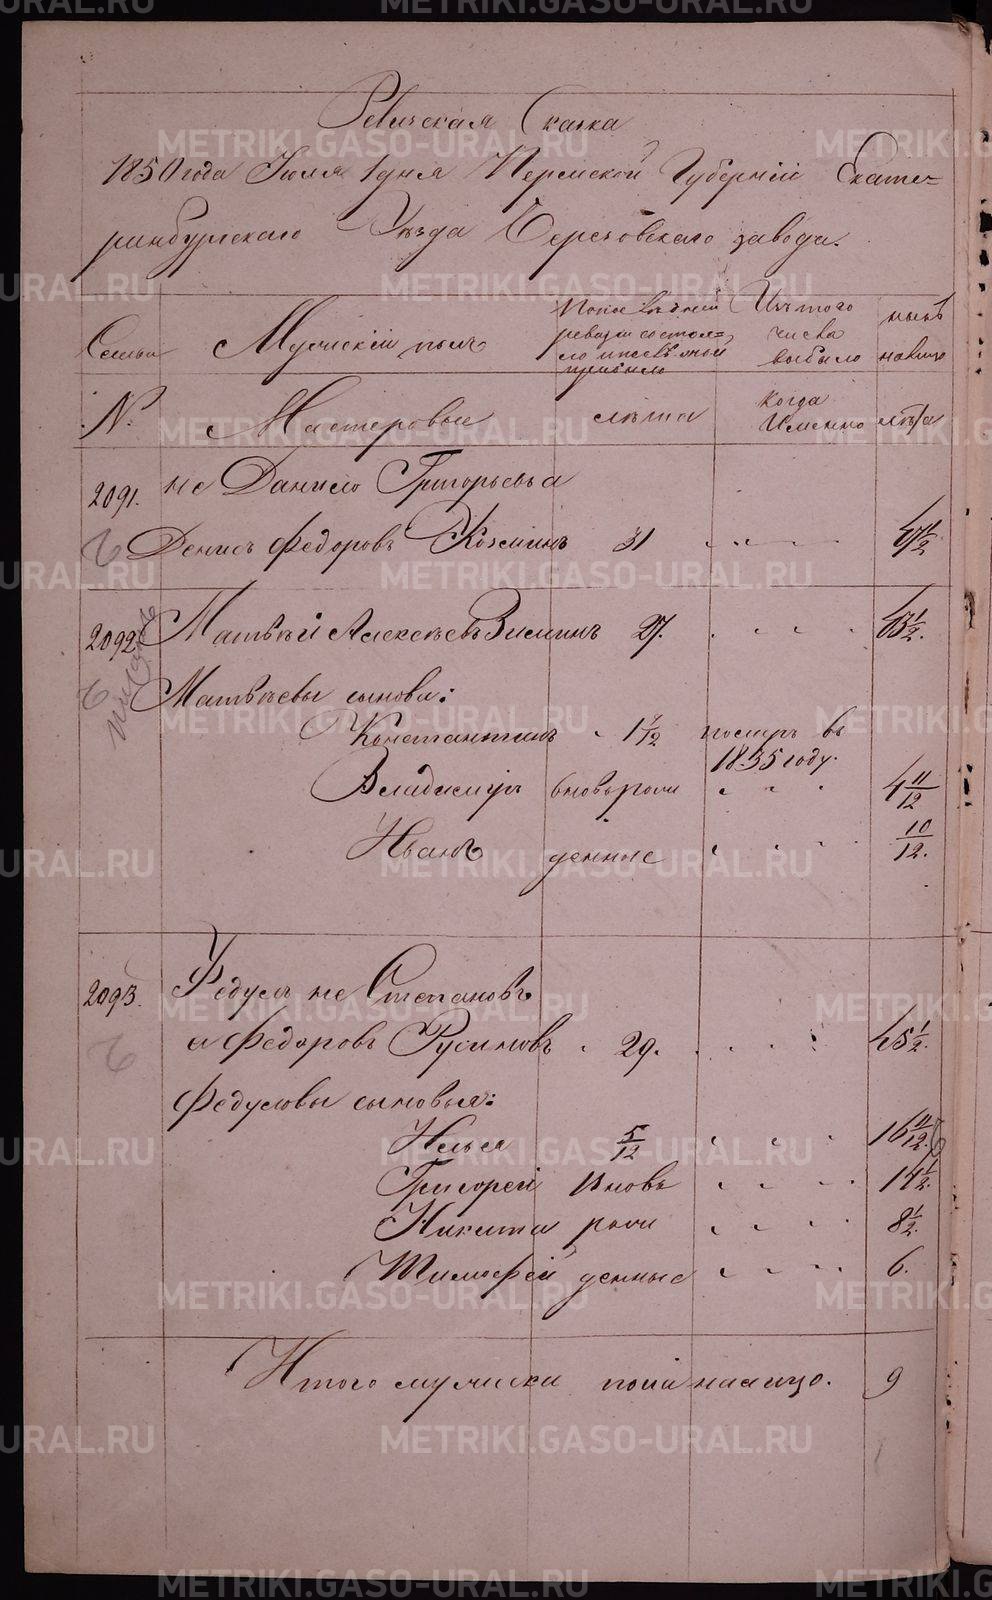 Ревизская Сказка
1850 года Июля 1 дня Пермской Губернии Екате-
ринбургскаго Уезда Березовскаго завода.
Семьи
Мужескій полъ
По последней
ревизіи состоя-
ло и после оной
прибыло
Изъ того
числа
выбыло
ныне
налицо
№
Мастеровые
лета
когда
Именно
лета
2091. не Данило Григорьевъ а
Денисъ Федоровъ Козминъ 31 47 1/2
2092. Матвей Алексеевъ Зиминъ 27. 43 1/2.
Матвеевы сыновья:
Константинъ 1 7/12 померъ въ
1835 году.
Владимиръ вновь рож 4 11/12
Иванъ денные 10/12.
2093. Федулъ не Степановъ
а Федоровъ Русиновъ 29. 45 1/2.
Федуловы сыновья:
Илья 5/12 16 11/12.
Григорей вновь 14 1/2.
Никита рож 8 1/2.
Тимофей денные 6.
Итого мужеска пола налицо. 9
METRIKI.GASO-URAL.RU